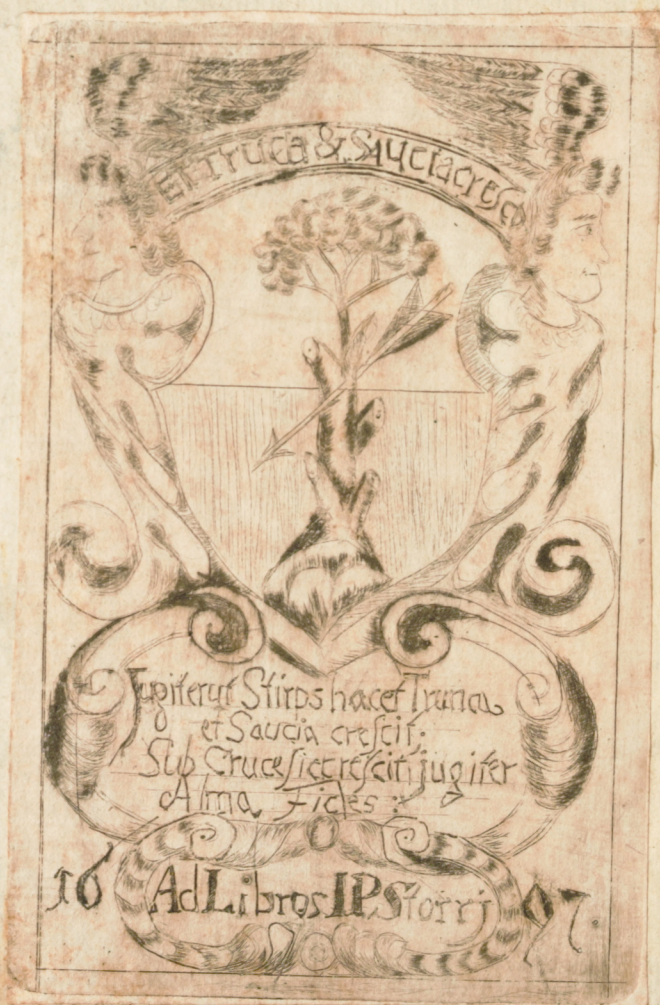 Et Truca & Saucia cresco
Jugiter ut Stirps hacet Trunca
et Saucia crescit;
Sub Cruce sic crescit, jugiter
Alma Fides
16 Ad Libros IP Storri 97.